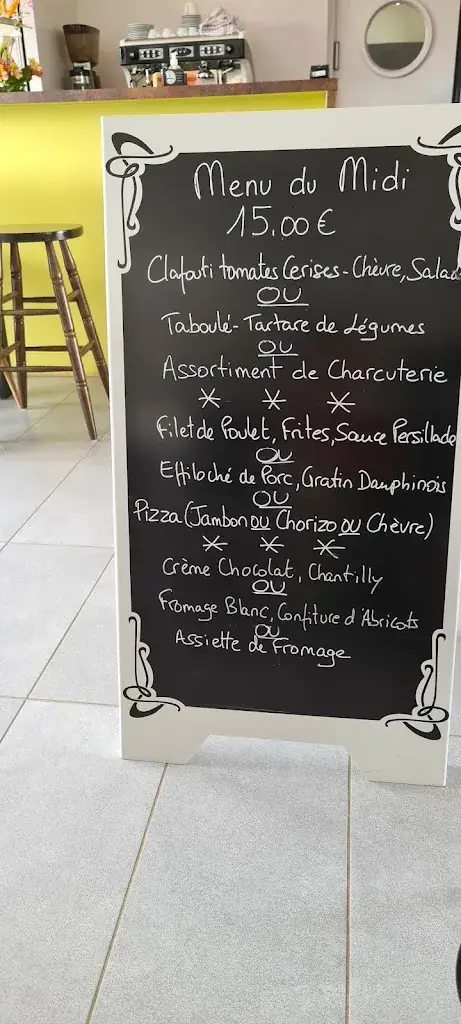 Menu du Midi
15.00 €
Clafouti tomates Cerises - Chèvre, Salade
OU
Taboulé - Tartare de Légumes
OU
Assortiment de Charcuterie
* * *
Filet de Poulet, Frites, Sauce Persillade
OU
Effiloché de Porc, Gratin Dauphinois
OU
Pizza (Jambon OU Chorizo OU Chèvre)
* * *
Crème Chocolat, Chantilly
OU
Fromage Blanc, Confiture d'Abricots
OU
Assiette de Fromage